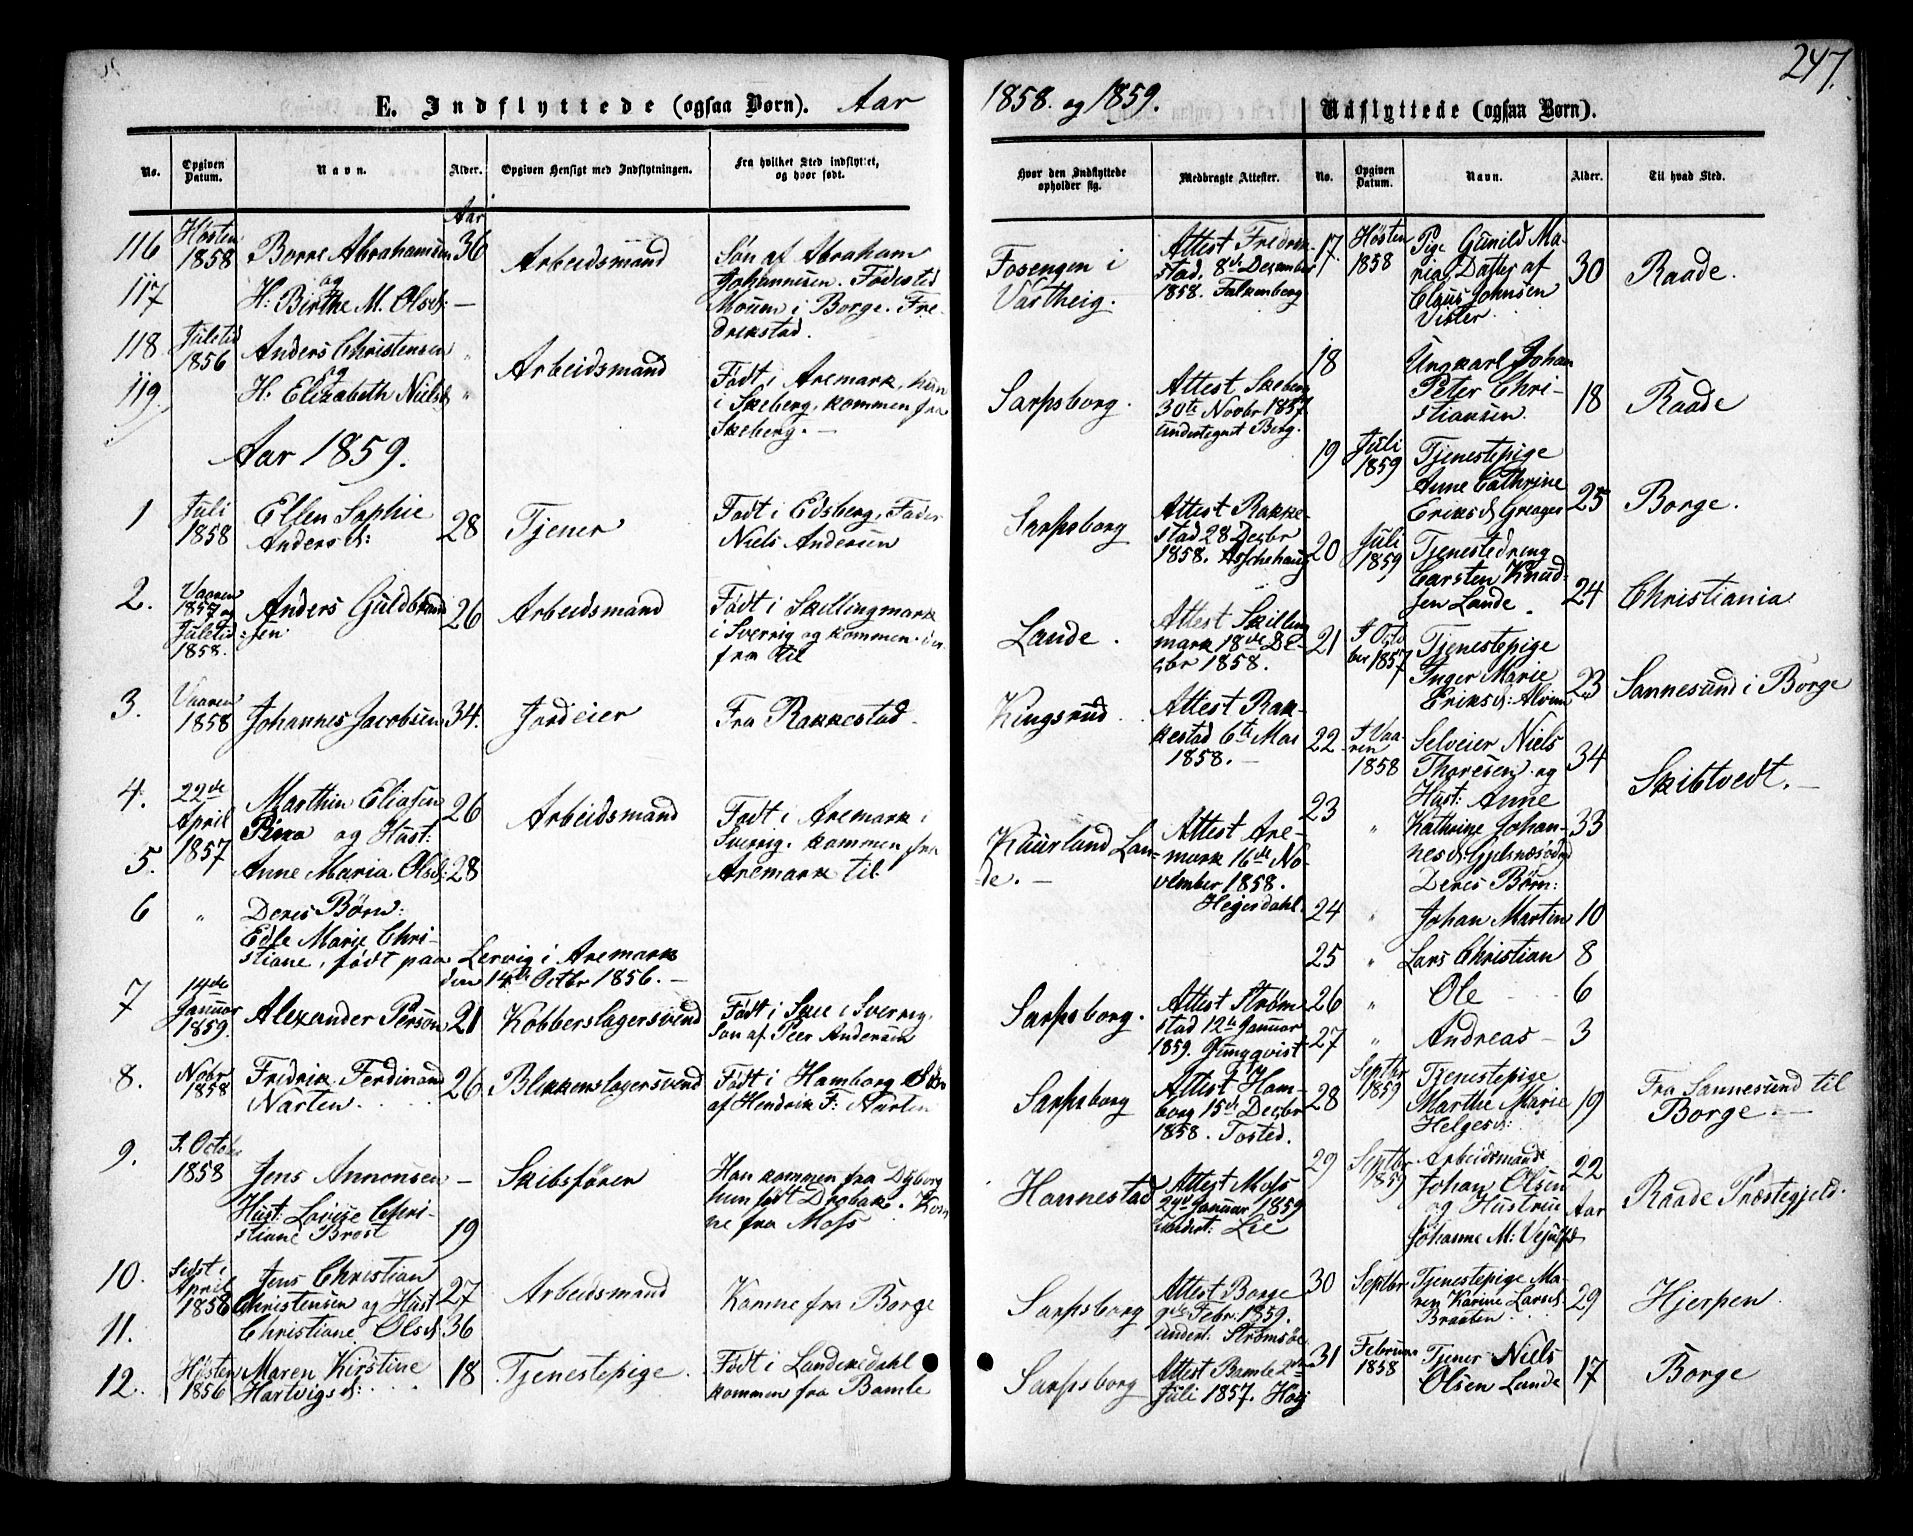 247.
E. Indflyttede (ogsaa Børn). Aar 1858. og 1859.
Udflyttede (ogsaa Børn).
No. Opgiven Datum. Navn. Alder. Opgiven Hensigt med Indflytningen. Fra hvilket Sted indflyttet, og hvor født. Hvor den Indflyttede opholder sig. Medbragte Attester.
Aar
116 Høsten 1858 Borre Abrahamsen 36 Arbeidsmand
og
117 H: Birthe M. Olsd: —
Søn af Abraham
Johannesen. Fødested
Mouum i Borge. Fre-
drikstad.
Fosengen i
Varteig.
Attest Fredrik-
stad. 8de Dezember
1858. Falkenberg
118 Juletid 1856 Anders Christensen " Arbeidsmand
og
119. H. Elizabeth Nielsd "
Født i Aremark, hun
i Skeberg, kommen fra
Skeberg. —
Sarpsborg.
Attest Skeberg
30te Novbr 1857.
undertegnet Berg.
Aar 1859.
1 Juli 1858 Ellen Sophie
Andersd: 28 Tjener
Født i Edsberg, Fader
Niels Andersen
Sarpsborg
Attest Rakke-
stad 28 Decbr
1858. Aschehaug
2. Vaaren 1857 og Juletid 1858. Anders Guldbrand-
sen 26 Arbeidsmand
Født i Skillingmark
i Sverrig og kommen der
fra til
Lande.
Attest Skilling
mark 18de De-
cbr 1858.
3. Vaaren 1858 Johannes Jacobsen 34. Jordeier
Fra Rakkestad
Kingsrud
Attest Rak-
kestad 6te Mai
1858. —
4. 22de April 1857 Marthin Eliasen 26 Arbeidsmand
og Hust:
5. Anne Maria Olsd: 28
Født i Aremark i
Sverrig. kommen fra
Aremark til
Kuurland Lan-
de. —
Attest Are-
mark 16de No-
vember 1858.
Hejerdahl.
6 " Deres Børn:
Edle Marie Chri-
stiane, født paa Lervig i Aremark
den 14de Octbr 1856. —
7 14de Januar 1859. Alexander Person 21 Kobberslagersvend
Født i Skee i Sverrig.
Søn af Peer Andersen
Sarpsborg.
Attest Strøm-
stad 12te Januar
1859. Jungqvist
8. Nobr 1858 Fredrik Ferdinand
Narten 26 Blikkenslagersvend
Født i Hamborg Søn
af Hendrik F: Narten
Sarpsborg
Attest Ham-
borg 15de Decbr
1858. Tosted.
9. I. October 1858 Jens Annonsen — Skibsfører
Hust: Louise Chri-
stiane Brost 19
Han kommen fra Dyborg
hun født Drøbak. Kom-
ne fra Moss
Hannestad
Attest Moss
Januar 1859
Lie
10. Sidst i April 1858 Jens Christian
Christensen og Hust 27 Arbeidsmand
11. Christiane Olsd 36
Komne fra Borge
Sarpsborg
Attest Borge
Febr. 1859.
undert. Strømsøe
12. Høsten 1856 Maren Kirstine
Hartvigsd: 18 Tjenestepige.
Født i Landekdahl
kommen fra Bamle
Sarpsborg
Attest Bamle 2den
Juli 1857. Høeg
No. Opgiven Datum. Navn. Alder. Til hvad Sted.
17. Høsten 1858 Pige Gunild Ma-
ria, Datter af
Claus Johnsen
Vister 30 Raade.
18 Ungkarl Johan
Peter Chri-
stiansen. 18 Raade
19 Juli 1859 Tjenestepige
Anne Cathrine
Eriksd Greager 25 Borge.
20 Juli 1859 Tjenestedreng
Carsten Knud-
sen Lande. 24 Christiania
21 I Octo ber 1857 Tjenestepige
Inger Marie
Eriksd: Alvim 23 Sannesund i Borge
22 I Vaa- ren 1858 Selveier Niels
Thoresen og 34 Skibtvedt. —
23 " Hust: Anne
Kathrine Johan- 33
nesd.
Deres Børn:
24 " Johan Martin 10
25 " Lars Christian 8
26 " Ole 6
27 " Andreas 3
28 Septbr 1859 Tjenestepige
Marthe Marie
Helgesd: 19 Fra Sannesund til
Borge. —
29 Septbr 1859 Arbeidsmand
Johan Olsen
og Hustrue
Johanne M: 22 Aar Raade Præstegjeld.
30 Septbr Tjenestepige Ma-
ren Karine Larsd
Braaten 29 Hjerpen
31 Februar 1858 Tjener Niels
Olsen Lande 17 Borge